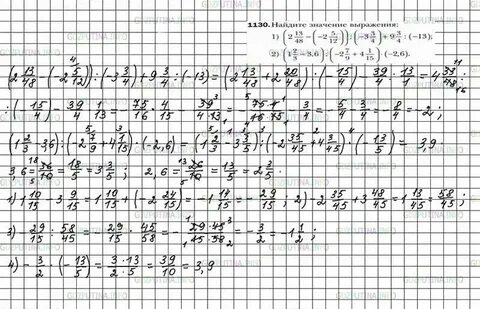 1130. Найдите значение выражения:
1) (2 13/48 − (−2 5/12)) : (−3 3/4) + 9 3/4 : (−13);
2) (1 2/3 − 3,6) : (−2 7/9 + 4 1/15) · (−2,6).
(2 13/48 − (−2 5/12)) : (−3 3/4) + 9 3/4 : (−13) = (2 13/48 + 2 20/48) : (−15/4) − 39/4 · 1/13 = 4 33/48 :
: (−15/4) − 39/4 · 1/13 = −75/16 · 4/15 − 39/4·13 = − 75·4/16·15 − 3/4 = −5/4 − 3/4 = −8/4 = −2;
(1 2/3 − 3,6) : (−2 7/9 + 4 1/15) · (−2,6) = (1 2/3 − 3 3/5) : (−2 35/45 + 4 3/45) · (−13/5) = 3,9
3,6 = 36/10 = 18/5 = 3 3/5 ; 2,6 = 26/10 = 13/5 = 2 3/5.
1) 1 10/15 − 3 9/15 = 1 10/15 + (−2 24/15) = −1 14/15 = −29/15 ; 2) −2 35/45 + 3 48/45 = 1 13/45 = 58/45 ;
3) −29/15 : 58/45 = −29/15 · 45/58 = − 29·45/15·58 = −3/2 = −1 1/2 ;
4) −3/2 · (−13/5) = 3·13/2·5 = 39/10 = 3,9
GDZPUTINA.INFO